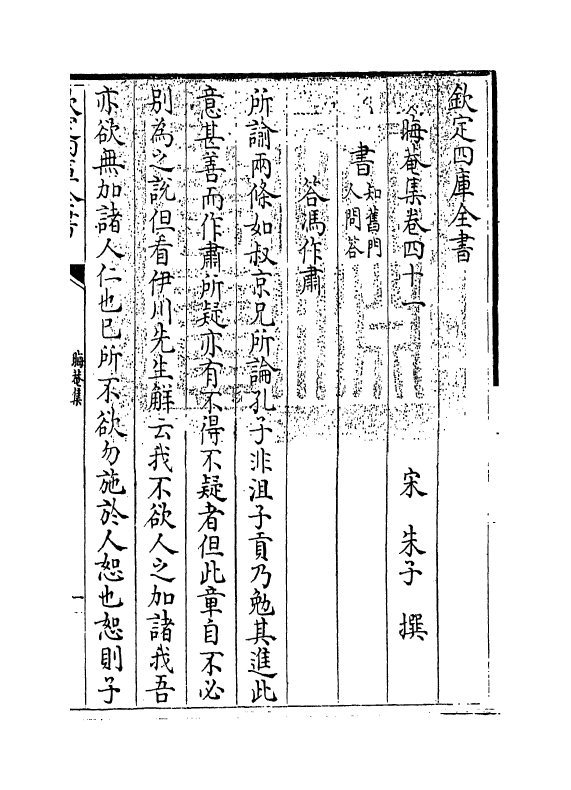 欽定四庫全書
晦菴集卷四十一
宋　朱子　撰
書知舊門人問答
答馮作肅
所諭兩條如叔京兄所論孔子非沮子貢乃勉其進此
意甚善而作肅所疑亦有不得不疑者但此章自不必
别為之說但看伊川先生解云我不欲人之加諸我吾
亦欲無加諸人仁也已所不欲勿施於人恕也恕則子
晦菴集
一